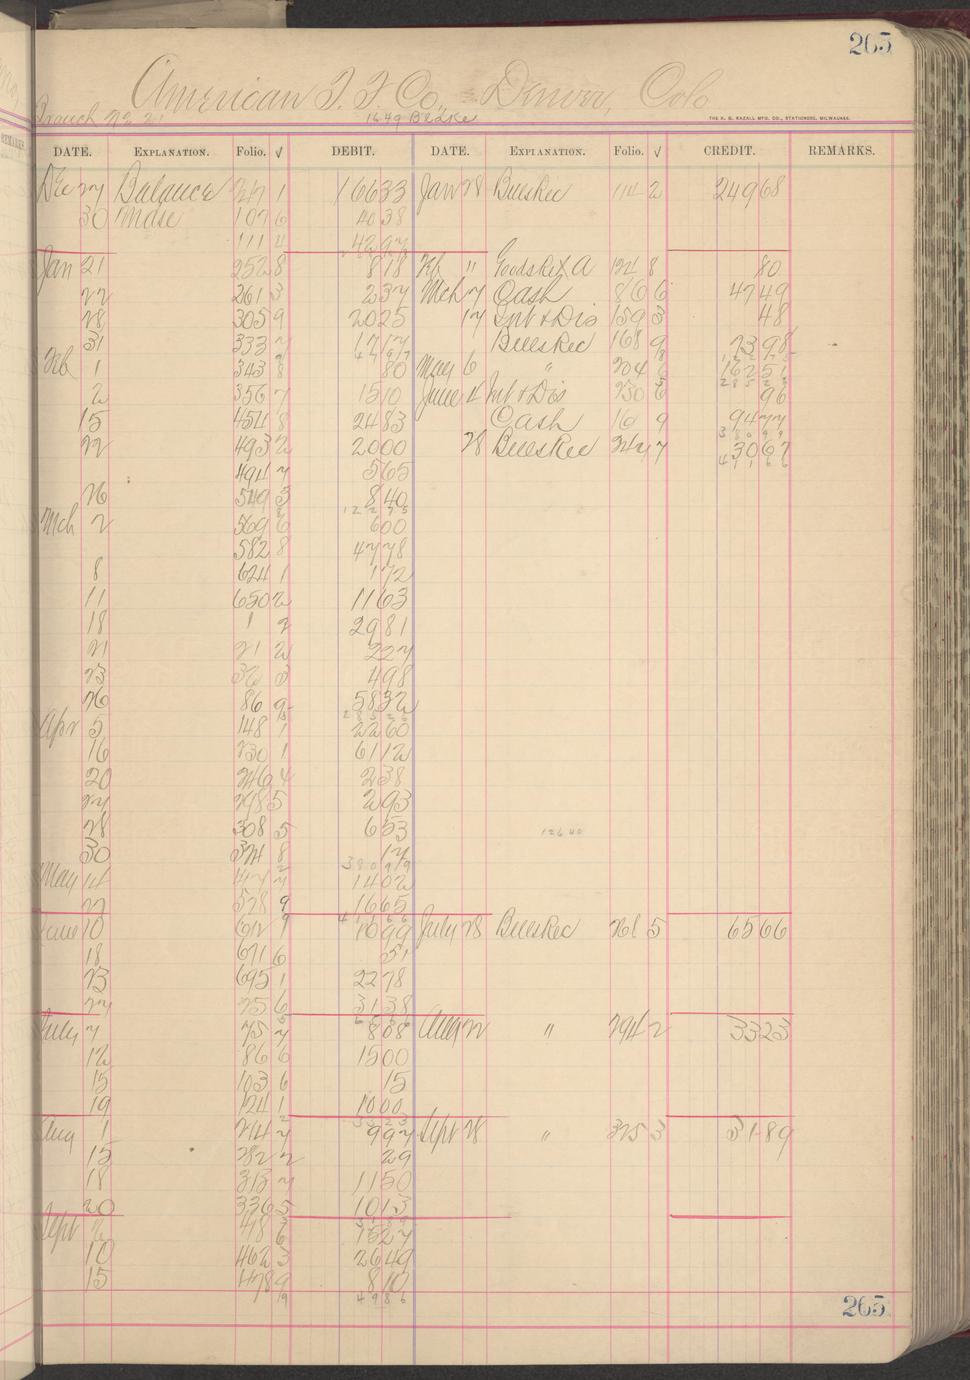 265
American F. F. Co., Denver, Colo
Branch 1649 Blake
THE H. G. RAZALL MFG. CO., STATIONERS, MILWAUKEE.
DATE. EXPLANATION. Folio. √ DEBIT. DATE. EXPLANATION. Folio. √ CREDIT. REMARKS.
Dec 27 Balance 1 16633 Jan 28 Bills Rec 114 2 24968
30 Mdse 107 6 4038
111 4 4297
Jan 21 252 8 818 Feb " Goods Ret A 124 8 80
22 261 3 237 Mch 7 Cash 80 6 4749
28 305 9 2025 17 Int & Dis 159 3 48
31 333 2 1717 Bills Rec 168 9 7398
Feb 1 343 8 80 May 6 " 204 6 16251
2 356 7 1510 June 4 Int & Dis 230 6 96
15 454 8 2483 Cash 16 9 9477
22 493 2 2000 28 Bills Rec 247 7 3067
494 7 565
26 549 3 840
12275
Mch 2 569 6 600
582 8 4778
8 624 1 172
11 650 2 1163
18 1 2 2981
21 21 2 227
23 32 3 498
26 86 9 5832
Apr 5 148 1 2260
16 230 1 6112
20 246 4 238
27 298 5 293
28 308 5 653 12640
30 324 8 17
38099
May 14 7 1402
27 528 9 1665
41166
June 10 612 9 1099 July 28 Bills Rec 261 5 6566
18 671 6 51
23 695 1 2278
27 25 6 3138
July 7 75 7 808 Aug 22 " 294 2 3323
12 86 6 1500
15 103 6 15
19 124 1 1000
Aug 1 244 7 997 Sept 28 " 325 3 3189
15 282 2 29
18 313 7 1150
20 336 5 1013
Sept 2 6 1527
10 462 3 2649
15 478 9 810
19 4986
265